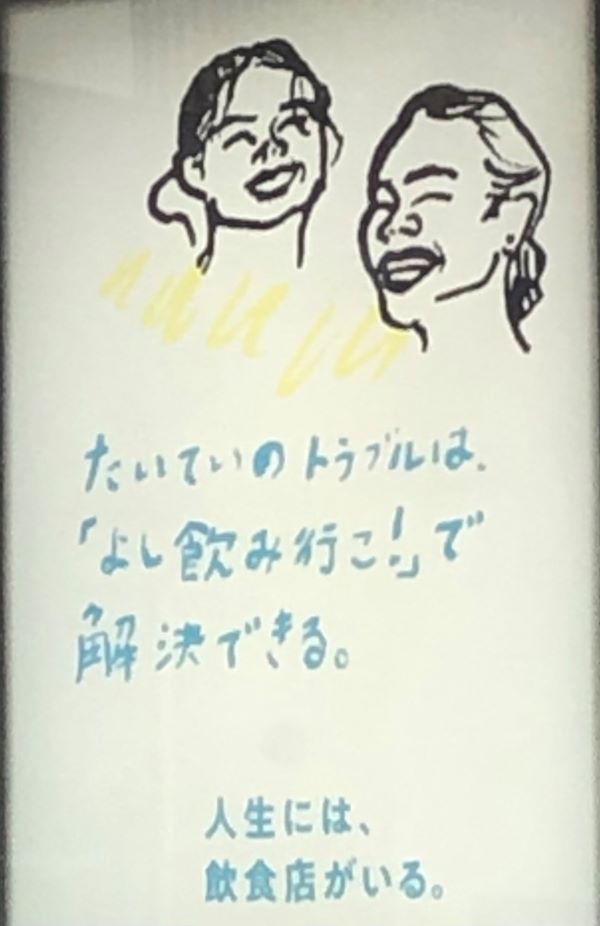 たいていのトラブルは、
「よし飲み行こ!」で
解決できる。
人生には、
飲食店がいる。